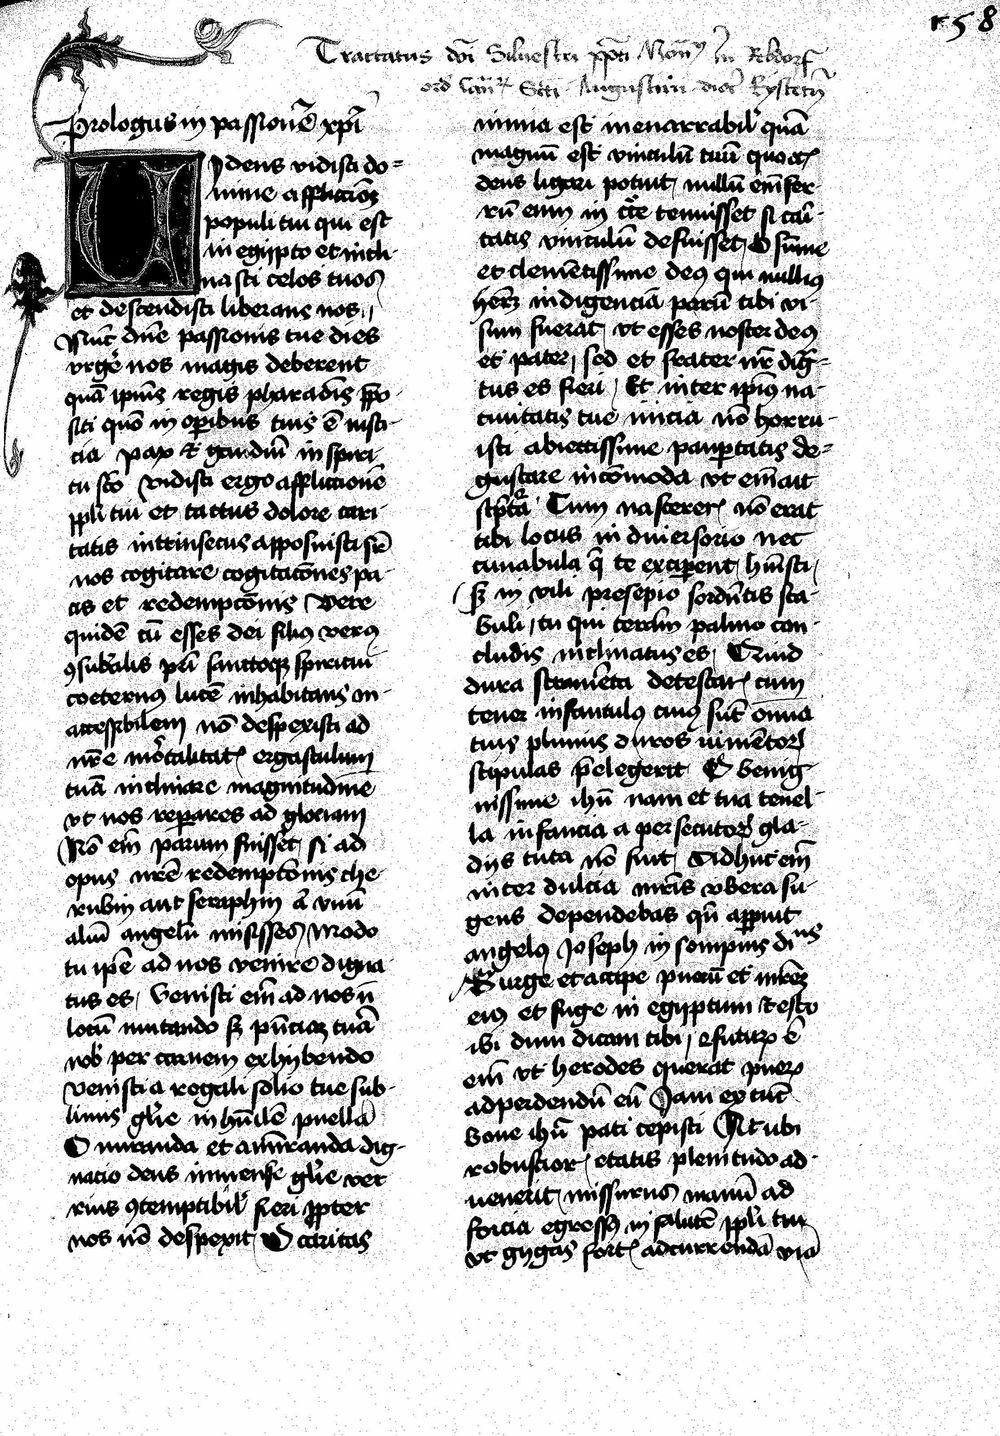 158
Tractatus dni Silvestri ppti Mon9 in Rebdorf
ord Can Scti Augustini dioc Eystetn
Prologus in passionē xpi
Videns vidisti do=
mine afflictioē
populi tui qui est
in egipto et incli-
nasti celos tuos
et descendisti liberans nos.
Nūc dnē passionis tue dies
vrgē nos magis deberent
quā ipius regis pharaōis ppo-
siti quō in operibus tuis ē iusti-
cia pax et gaudiū in spiri-
tu scō Vidisti ergo afflictionē
ppli tui et tactus dolore cari-
tatis intrinsecus apposuisti sr
nos cogitare cogitacōnes pa-
cis et redempcōnis Vere
quidē cū esses dei filius verus
9sūbalis pri sanctoqz spiritui
coeternus lucē inhabitans in-
accessibilem nō despexisti ad
nr̄e mōrtalitatꝭ ergastulum
tuā inclinare magnitudinē
vt nos repares ad gloriam
Nō em̄ parum fuisset, si ad
opus nrē redemptōnis che-
rubin aut seraphin a vnū
aliū angelū misisses Modo
tu ipē ad nos venire digna-
tus es, Venisti em̄ ad nos n̄
locū mutando sꝫ pn̄ciaꝫ tuā
nob per carnem exhybendo
Venisti a regali solio tue sub-
limis glie in hūilē puellā
O miranda et ammiranda dig-
nacio deus inmense glie ver
mis 9temptibil fieri ppter
nos nō despexit, O caritas
nimia est inenarrabil quā
magnū est vinculū tuū quo et
deus ligari potuit, nullū em̄ fer-
rū eum in cce tenuisset si cari-
tatis vinculū defuisset, O sūme
et clementissime deus qui nullius
herꝫ indigenciā parū tibi vi-
sum fuerat, vt esses noster deus
et pater, sed et frater nr̄ dig-
tus es fieri, Et inter ipius na-
tiuitatis tue inicia nō horru-
isti abiectissime paupertatis de-
gustare incōmoda vt em̄ ait
scptā Cum nascererꝭ nō erat
tibi locus in diuersorio nec
cunabula q̄ te exciperent hūisti,
sꝫ in vili presepio sordn̄tis sta-
buli, tu qui terrām palmo con-
cludis inclinatus es, Quid
dura strameta detestarꝭ cum
tener infantulus cuius sūt omnia
tuis plumis duros iumētorꝭ
stipulas p̄elegerit O benig-
nissime ihū nam et tua tenel-
la infancia a persecutorꝭ gla-
dijs tuta nō fuit, Adhuc em̄
inter dulcia mris vbera su-
gens dependebas qn̄ appuit
angelus Joseph in sompnis dicens
Surge et accipe pueru et mrēꝫ
eius et fuge in egiptum et esto
ibi dum dicam tibi, futurꝫ ē
em̄ vt herodes querat puerꝫ
ad perdendū eū Jam ex tūc
bone ihū pati cepisti At ubi
robustiorꝭ etatis plenitudo ad-
uenerit, missurus manū ad
forcia egressus in salutē ppli tui
vt gygas fortꝭ ad currendā viā